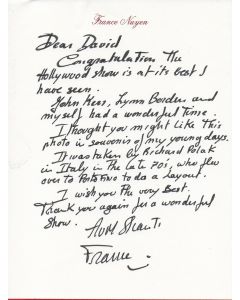 France Nuyen
Dear David
Congratulation The
Hollywood show is at its best I
have seen.
John Kerr, Lynn Borden and
myself had a wonderful time.
I thought you might like this
photo in souvenir of my young days.
It was taken by Richard Polak
in Italy in the late 70s, who flew
over to Portofino to do a layout.
I wish you The very Best.
Thank you again for a wonderful
show.
France